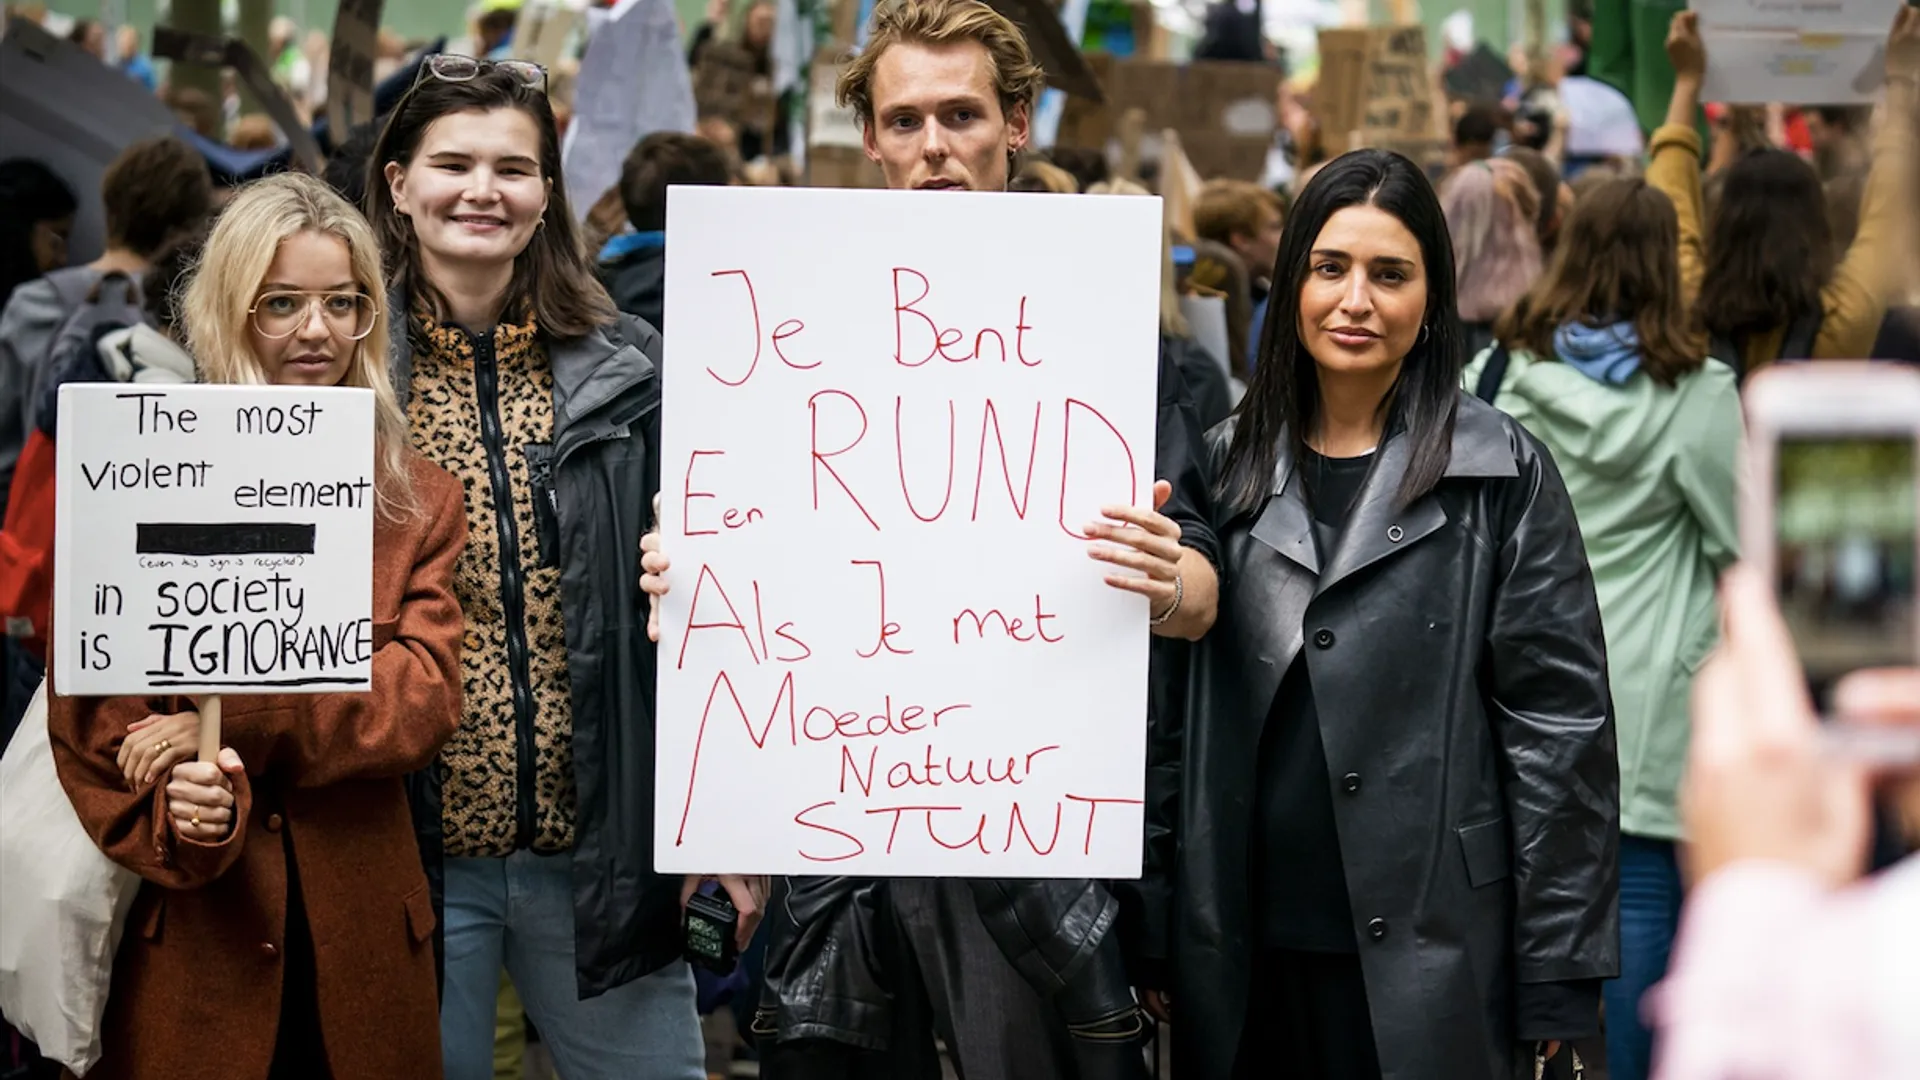 The most
violent element
(even this sign is recycled)
in society
is IGNORANCE
Je Bent
Een RUND
Als Je met
Moeder
Natuur
STUNT